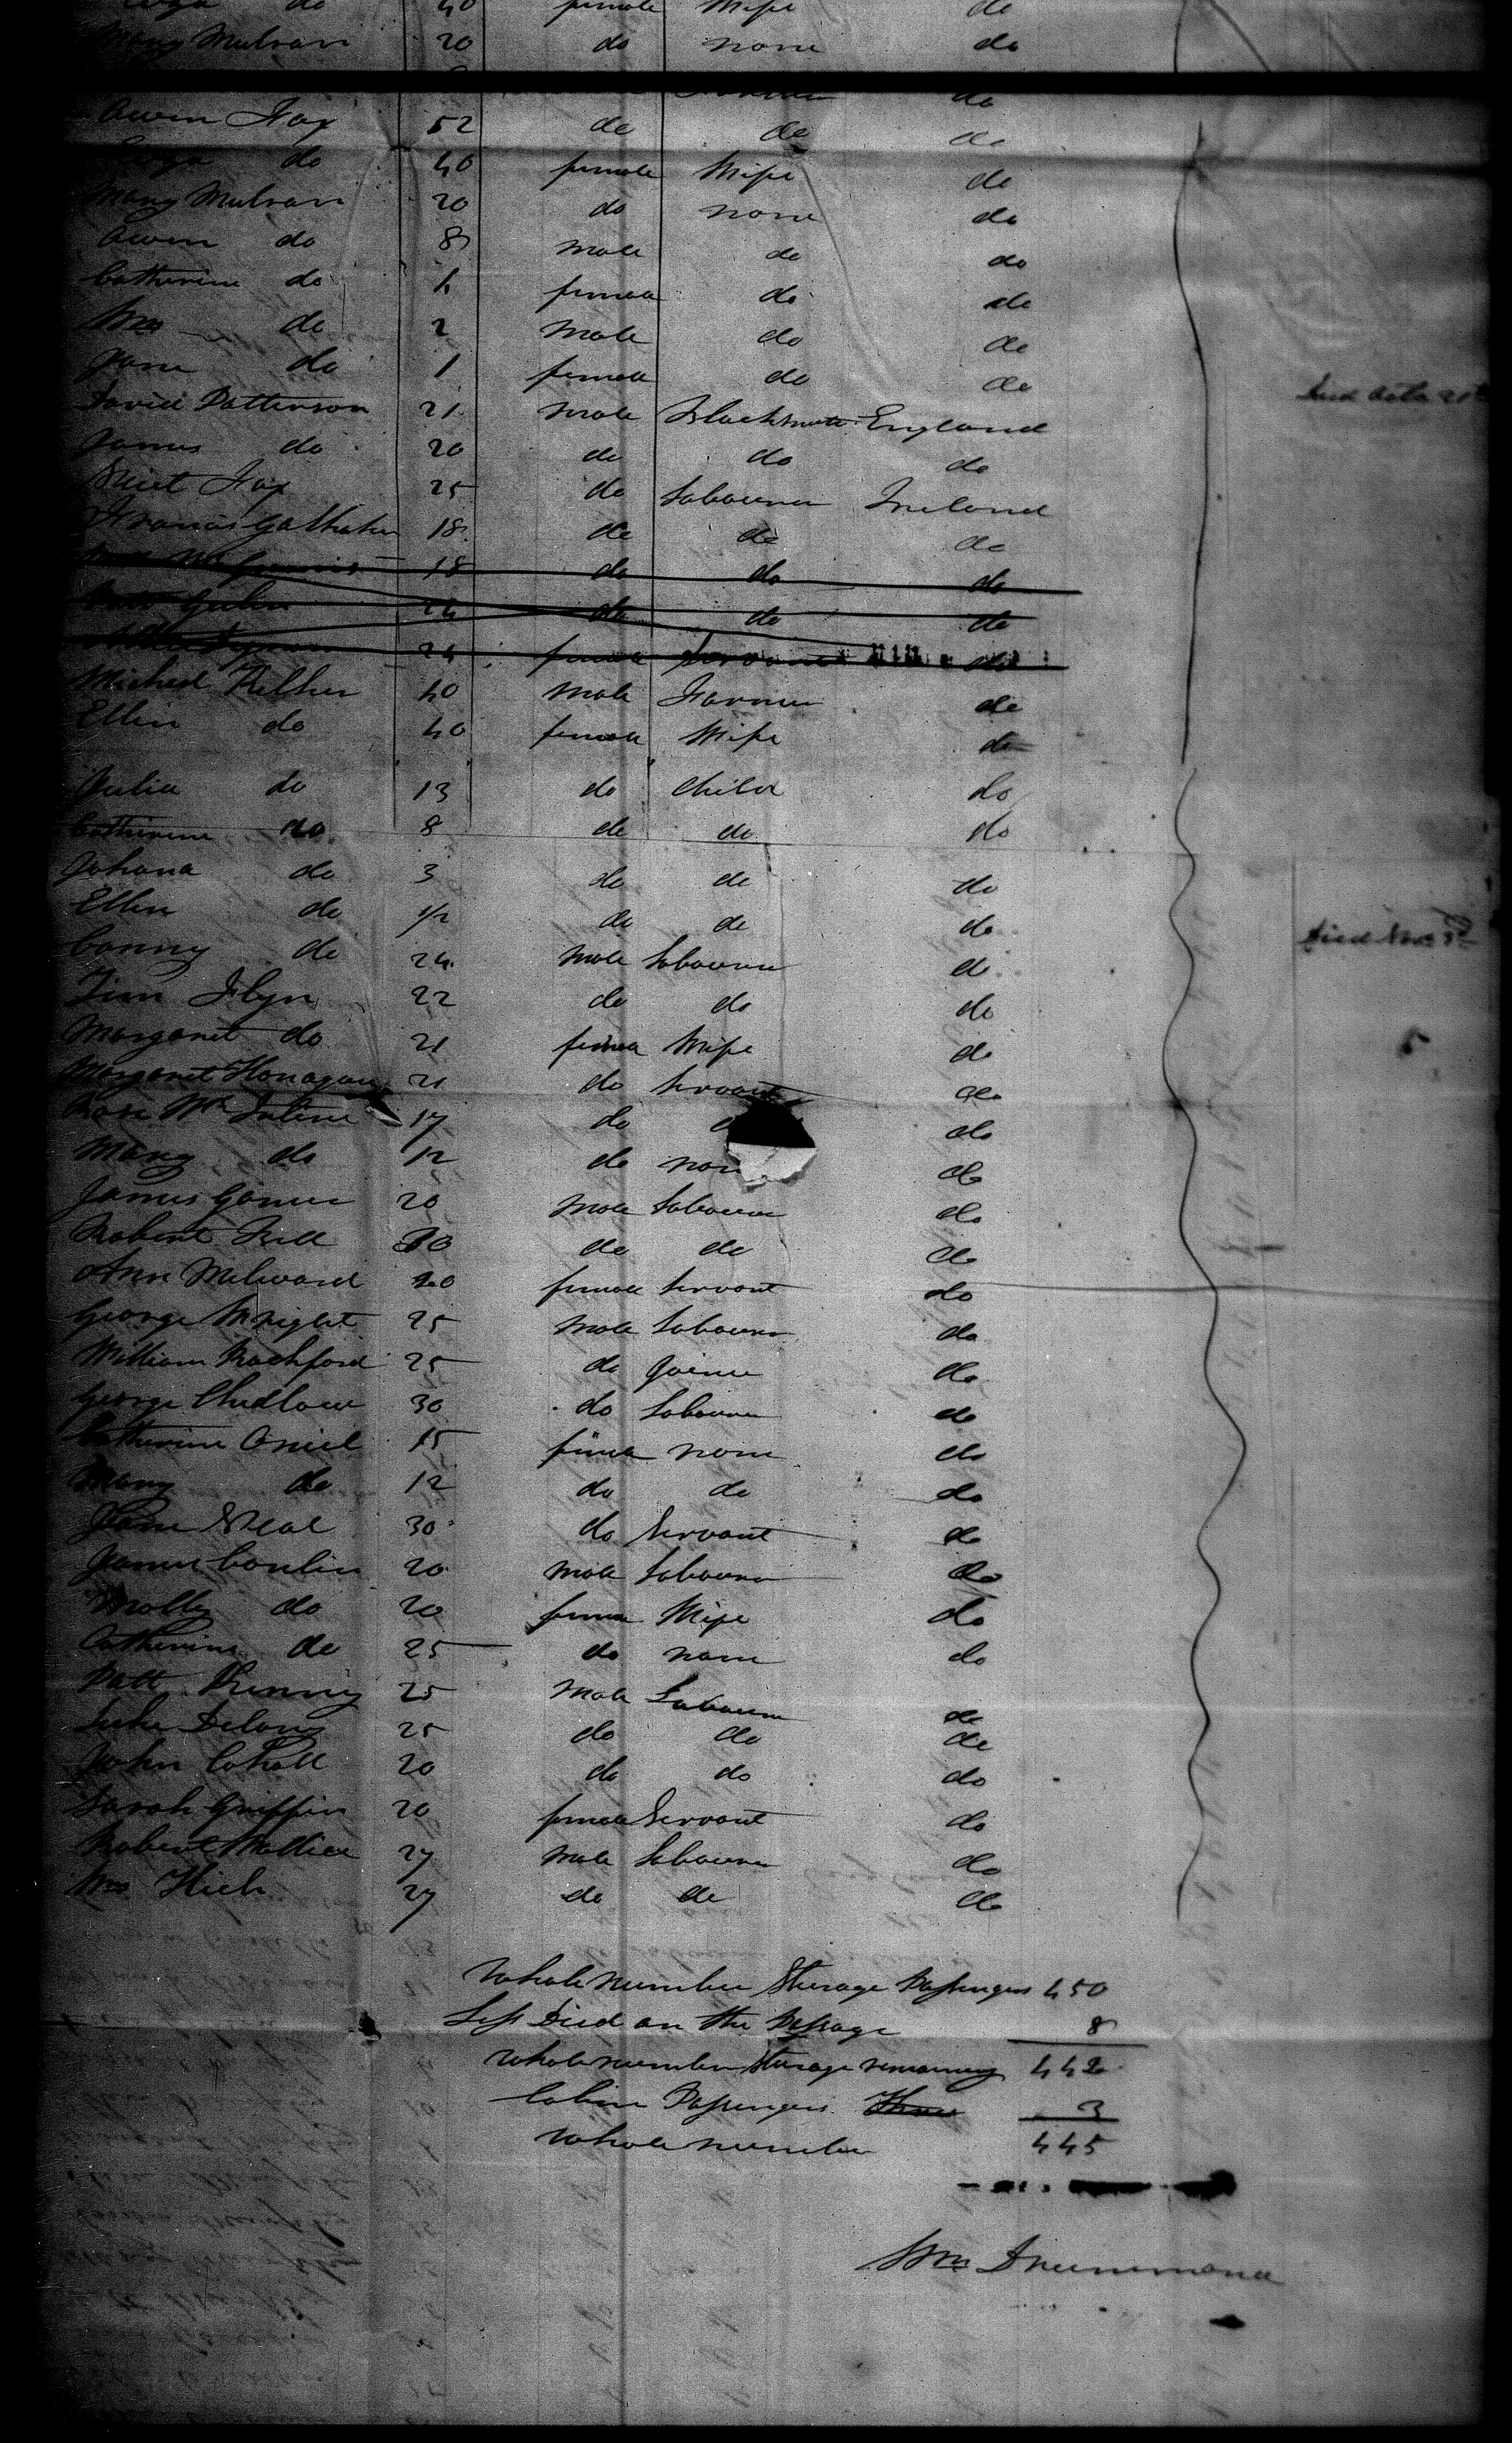 do 40 female Wife do
Mary Mulvan 20 do none do
do
Owen Fay 52 do do do
do 40 female Wife do
Mary Mulvan 20 do none do
Owen do 8 male do do
Catherine do 4 female do do
Wm do 2 male do do
Jane do 1 female do do Died Octr 21st
David Patterson 21 male Blacksmith England
James do 20 do do do
Fay 25 do Labourer Ireland
Francis 18 do do do
18 do do do
24 do do do
24 female Servant do
Michael 40 male Farmer do
Ellen do 40 female Wife do
Julia do 13 do Child do
Catherine do 8 do do do
Johana do 3 do do do
Ellen do 1/2 do do do Died Nov
Conny do 24 male Labourer do
Tim Flyn 22 do do do
Margaret do 21 female Wife do
Margaret Honagan 21 do Servant do
Rose Mc 17 do do
Mary do 12 do non do
James 20 male Labourer do
Robert Bell 30 do do do
Ann Milward 20 female Servant do
George Wright 25 male Labourer do
William Rochford 25 do Joiner do
George Chudlow 30 do Labourer do
Catherine Oniel 15 female none do
Mary do 12 do do do
Jane Neal 30 do Servant do
James Conlin 20 male Labourer do
Molly do 20 female Wife do
Catherine do 25 do none do
Patt 25 Male Labourer do
Luke Delany 25 do do do
John Cahall 20 do do do
Sarah Griffin 20 female Servant do
Robert 27 male Labourer do
Wm 27 do do do
Whole number Sterage Passengers 450
Less Died on the Passage 8
Whole number Sterage remaining 442
Cabin Passengers Three 3
Whole number 445
Wm Drummond